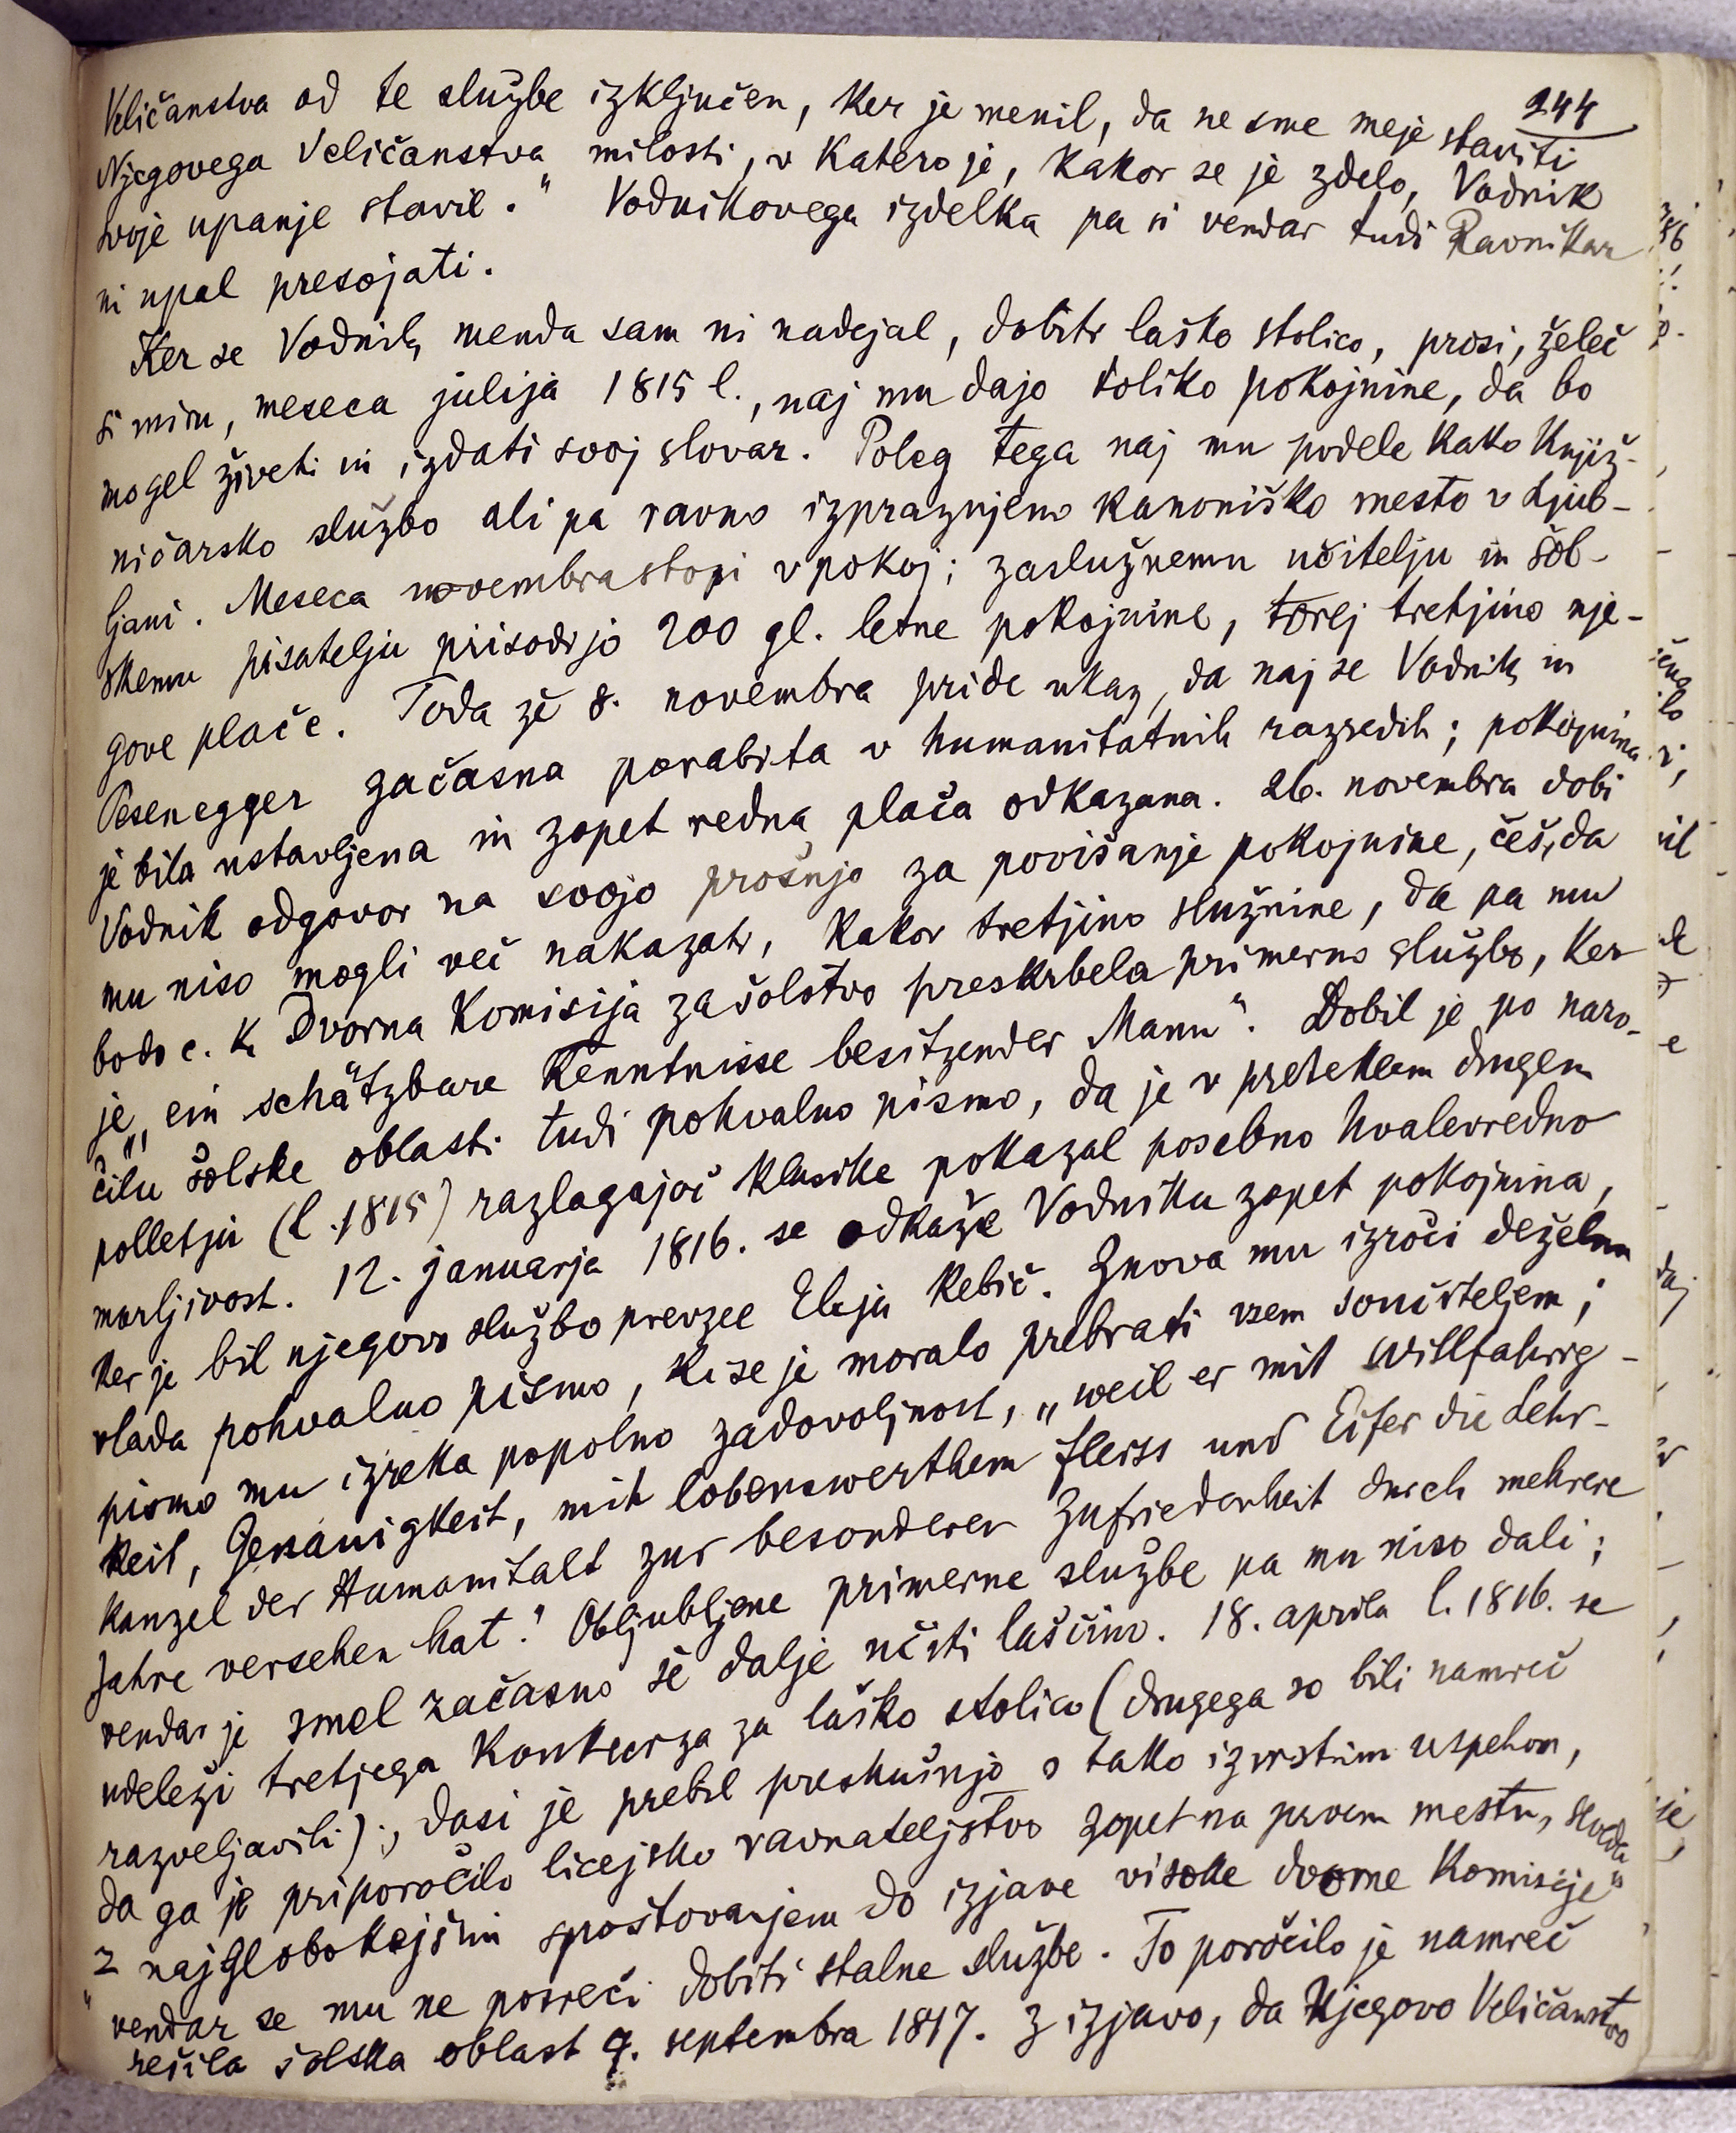 244
Veličanstva od te službe izključen, ker je menil, da ne sme meje staviti
Njegovega Veličanstva milosti, v katero je, kakor se je zdelo, Vodnik
svoje upanje stavil." Vodnikovega izdelka pa si vendar tudi Ravnikar
ni upal presojati.
Ker se Vodnik menda sam ni nadejal, dobiti laško stolico, prosi, želeč
si miru, meseca julija 1815 l., naj mu dajo toliko pokojnine, da bo
mogel živeti in izdati svoj slovar. Poleg tega naj mu podele kako knjiž-
ničarsko službo ali pa ravno izpraznjeno kanoniško mesto v Ljub-
ljani. Meseca novembra stopi v pokoj; zaslužnemu učitelju in šol-
skemu pisatelju prisodijo 200 gl. letne pokojnine, torej tretjino nje-
gove plače. Toda že 8. novembra pride ukaz, da naj se Vodnik in
Pesenegger začasna porabita v humanitatnih razredih; pokojnina
je bila ustavljena in zopet redna plača odkazana. 26. novembra dobi
Vodnik odgovor na svojo prošnjo za povišanje pokojnine, češ, da
mu niso mogli več nakazati, kakor tretjino služnine, da pa mu
bodo c. k. Dvorna komisija za šolstvo preskrbela primerno službo, ker
je „ein schätzbare Kenntnisse besitzender Mann". Dobil je po naro-
čilu šolske oblasti tudi pohvalno pismo, da je v preteklem drugem
polletju (l. 1815) razlagajoč klasike pokazal posebno hvalevredno
marljivost. 12. januarja 1816. se odkaže Vodniku zopet pokojnina,
ker je bil njegovo službo prevzel Elija Rebič. Znova mu izroči deželna
vlada pohvalno pismo, ki se je moralo prebrati vsem součiteljem;
pismo mu izreka popolno zadovoljnost, „weil er mit Willfahrig-
keit, Genauigkeit, mit lobenswerthem fleiss und Eifer die Lehr-
kanzel der Humanitalt zur besonderen Zufriedenheit durch mehrere
Jahre versehen hat." Obljubljene primerne službe pa mu niso dali;
vendar je smel začasno še dalje učiti laščino. 18. aprila l. 1816. se
udeleži tretjega konkurza za laško stolico (drugega so bili namreč
razveljavili); dasi je prebil preskušnjo s tako izvrstnim uspehom,
da ga je priporočilo licejsko ravnateljstvo zopet na prvem mestu, seveda
„z najglobokejšim spoštovanjem do izjave visoke dvorne komisije"
vendar se mu ne posreči dobiti stalne službe. To poročilo je namreč
rešila šolska oblast 9. septembra 1817. z izjavo, da Njegovo Veličanstvo